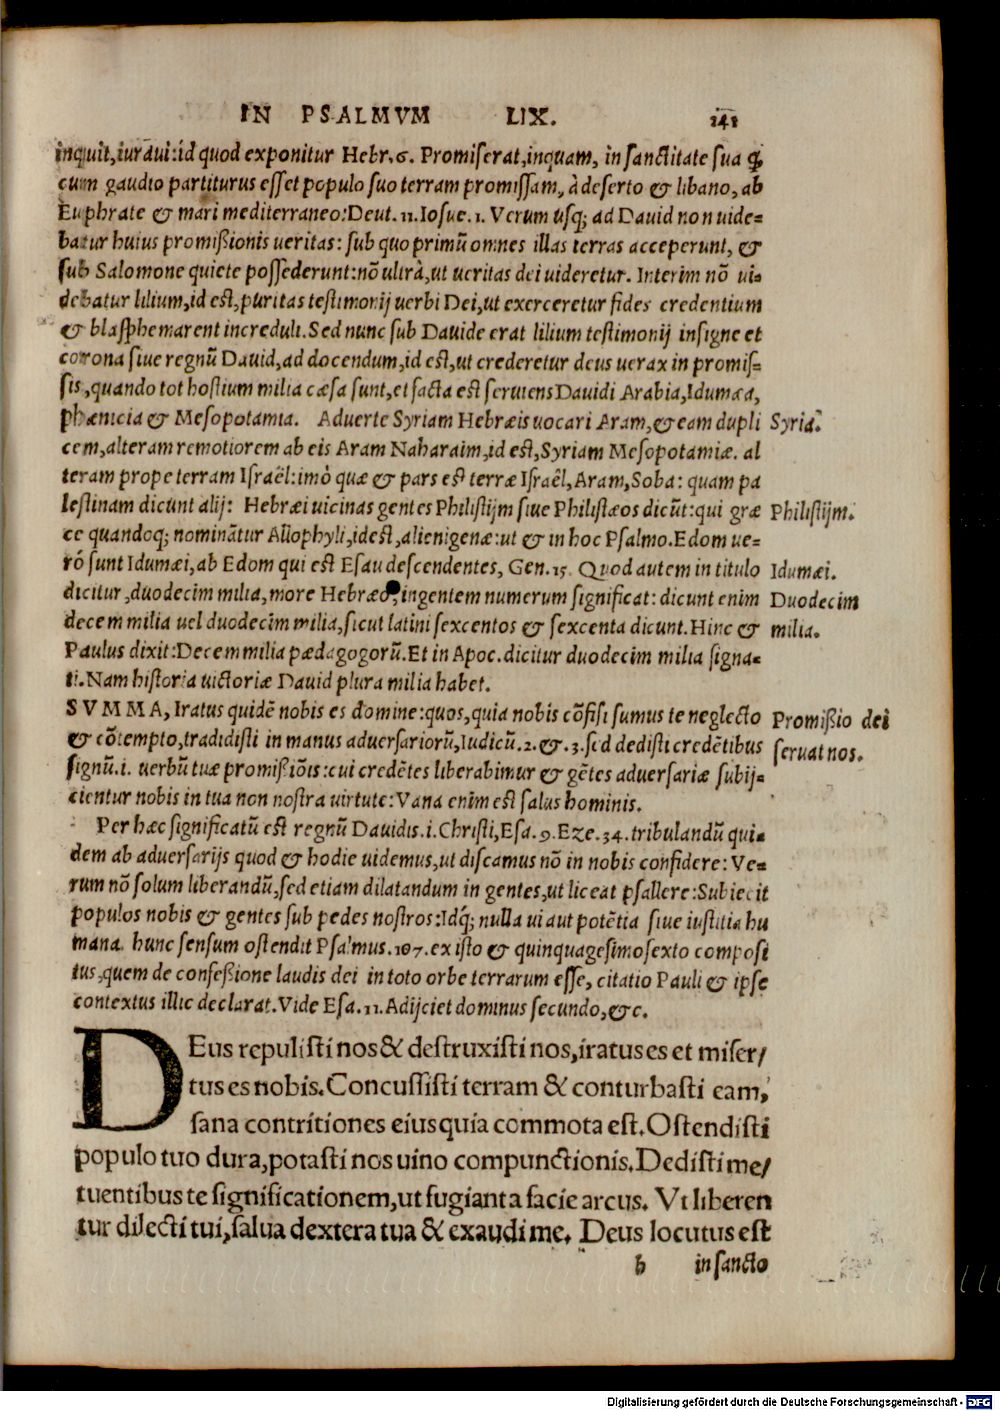 IN PSALMVM LIX. 141
inquit, iurãui: id quod exponitur Hebr. 6. Promiserat, inquam, in sanctitate sua q̃
cum gaudio partiturus esset populo suo terram promissam, à deserto & libano, ab
Euphrate & mari mediterraneo: Deut. 11. Iosue. 1. Verum usq; ad Dauid non uide=
batur huius promißionis ueritas: sub quo primũ omnes illas terras acceperunt, &
sub Salomone quiete possederunt: nõ ultrà, ut ueritas dei uideretur. Interim nõ ui=
debatur lilium, id est, puritas testimonij uerbi Dei, ut exerceretur fides credentium
& blasphemarent increduli. Sed nunc sub Dauide erat lilium testimonij insigne et
corona siue regnũ Dauid, ad docendum, id est, ut crederetur deus uerax in promis=
sis, quando tot hostium milia cæsa sunt, et facta est seruiens Dauidi Arabia, Idumæa,
phœnicia & Mesopotamia. Aduerte Syriam Hebræis uocari Aram, & eam dupli Syria.
cem, alteram remotiorem ab eis Aram Naharaim, id est, Syriam Mesopotamiæ. al
teram prope terram Israël: imò quæ & pars est terræ Israêl, Aram, Soba: quam pa
lestinam dicunt alij: Hebræi uicinas gentes Philistijm siue Philistæos dicũt: qui græ Philistijm.
ce quandoq; nominãtur Allophyli, idest, alienigenæ: ut & in hoc Psalmo. Edom ue=
rò sunt Idumæi, ab Edom qui est Esau descendentes, Gen. 15. Quod autem in titulo Idumæi.
dicitur, duodecim milia, more Hebræo, ingentem numerum significat: dicunt enim Duodecim
decem milia uel duodecim milia, sicut latini sexcentos & sexcenta dicunt. Hinc & milia.
Paulus dixit: Decem milia pædagogorũ. Et in Apoc. dicitur duodecim milia signa=
ti. Nam historia uictoriæ Dauid plura milia habet.
SVMMA, Iratus quidẽ nobis es domine: quos, quia nobis cõfisi sumus te neglecto Promißio dei
& cõtempto, tradidisti in manus aduersariorũ, Iudicũ. 2. &. 3. sed dedisti credẽtibus seruat nos.
signũ. i. uerbũ tuæ promißiõis: cui credẽtes liberabimur & gẽtes aduersariæ subij=
cientur nobis in tua non nostra uirtute: Vana enim est salus hominis.
Per hæc significatũ est regnũ Dauidis. i. Christi, Esa. 9. Eze. 34. tribulandũ qui=
dem ab aduersarijs quod & hodie uidemus, ut discamus nõ in nobis confidere: Ve=
rum nõ solum liberandũ, sed etiam dilatandum in gentes, ut liceat psallere: Subiecit
populos nobis & gentes sub pedes nostros: Idq́; nulla ui aut potẽtia siue iustitia hu
mana. hunc sensum ostendit Psalmus. 107. ex isto & quinquagesimosexto composi
tus, quem de confeßione laudis dei in toto orbe terrarum esse, citatio Pauli & ipse
contextus illic declarat. Vide Esa. 11. Adijciet dominus secundo, &c.
DEus repulisti nos & destruxisti nos, iratus es et miser/
tus es nobis. Concussisti terram & conturbasti eam,
sana contritiones eius quia commota est. Ostendisti
populo tuo dura, potasti nos uino compunctionis. Dedisti me/
tuentibus te significationem, ut fugiant a facie arcus. Vt liberen
tur dilecti tui, salua dextera tua & exaudi me. Deus locutus est
b in sancto
Digitalisierung gefördert durch die Deutsche Forschungsgemeinschaft - DFG